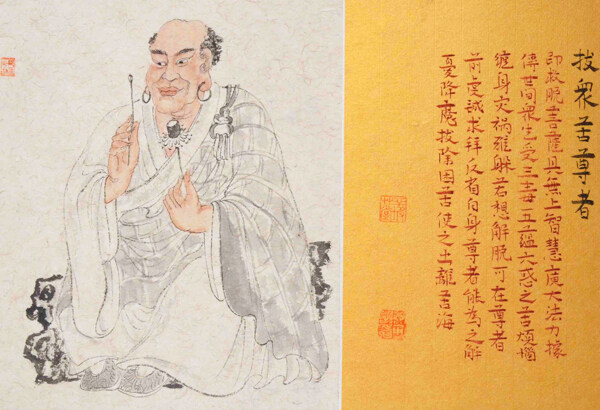 拔衆苦尊者
即救脱菩薩具無上智慧廣大法力據
傳世间衆生受三毒五藴六惑之苦煩惱
纏身灾禍難躲若想解脱可在尊者
前虔誠求拜反省自身尊者能為之解
憂降魔拔除困苦使之出離苦海